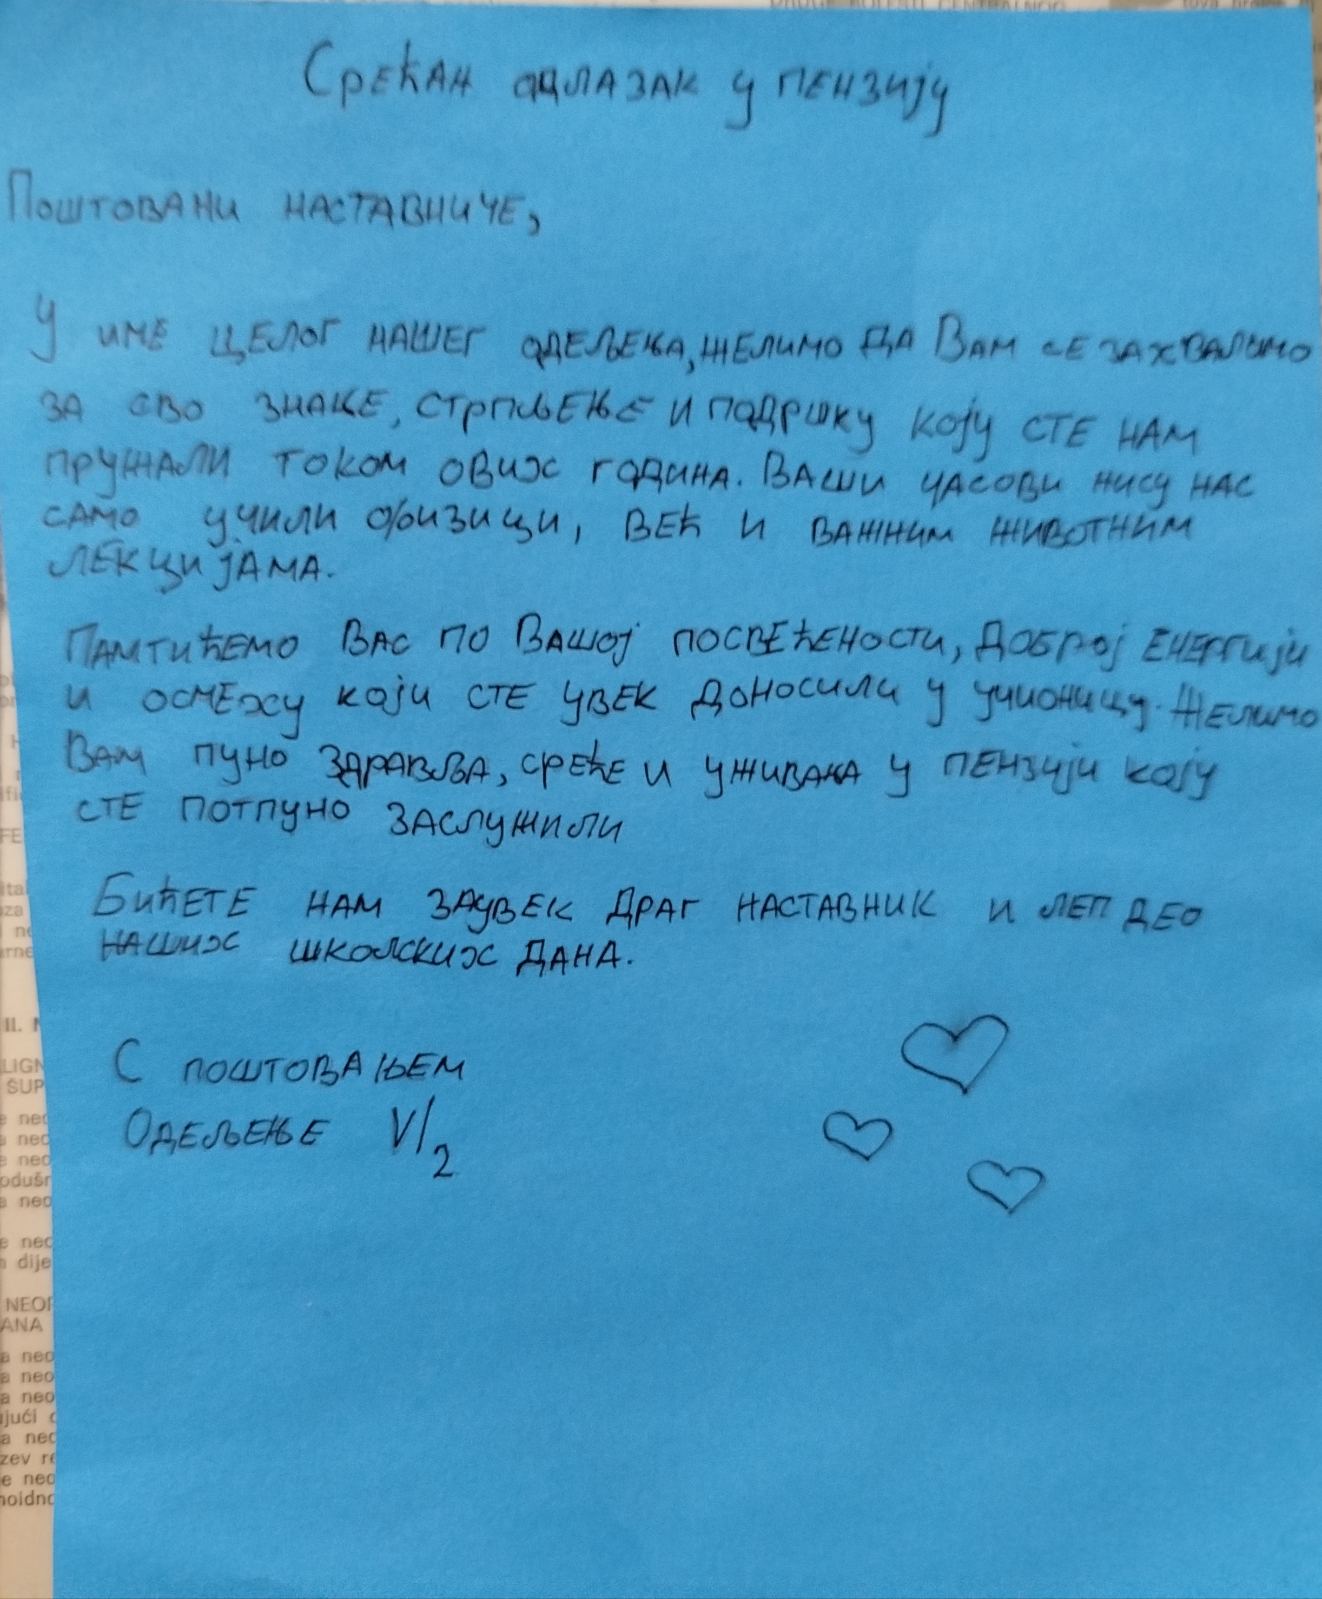 Срећан одлазак у пензију
Поштовани наставниче,
У име целог нашег одељења, желимо да Вам се захвалимо
за сво знање, стрпљење и подршку коју сте нам
пружали током ових година. Ваши часови нису нас
само учили физици, већ и важним животним
лекцијама.
Памтићемо Вас по Вашој посвећености, доброј енергији
и осмеху који сте увек доносили у учионицу. Желимо
Вам пуно здравља, среће и уживања у пензији коју
сте потпуно заслужили
Бићете нам заувек драг наставник и леп део
наших школских дана.
С поштовањем
Одељење V/2